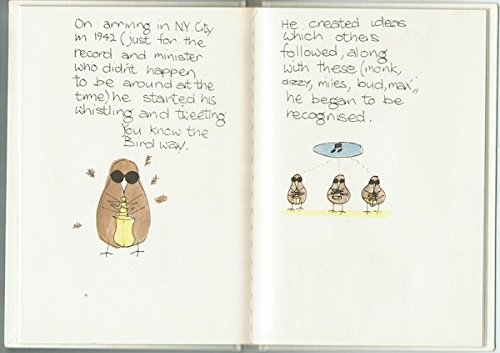 On arriving in N.Y. City
in 1942 (just for the
record and minister
who didn't happen
to be around at the
time) he started his
whistling and tweeting
You know the
Bird way.
He created ideas
which others
followed, along
with these (monk,
dizzy, miles, bud, max),
he began to be
recognised.